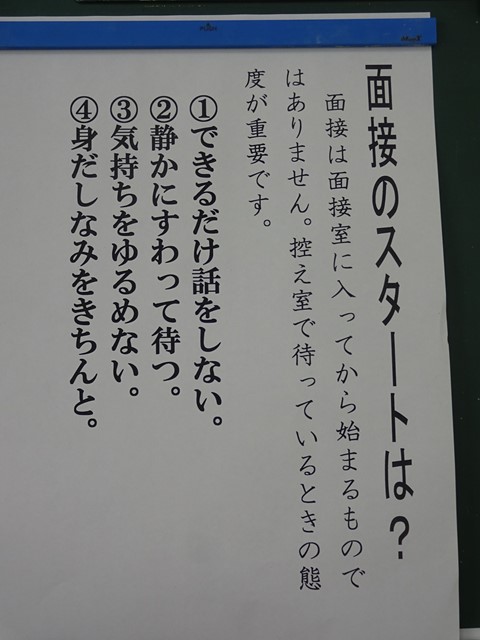 面接のスタートは？
面接は面接室に入ってから始まるもので
はありません。控え室で待っているときの態
度が重要です。
①できるだけ話をしない。
②静かにすわって待つ。
③気持ちをゆるめない。
④身だしなみをきちんと。